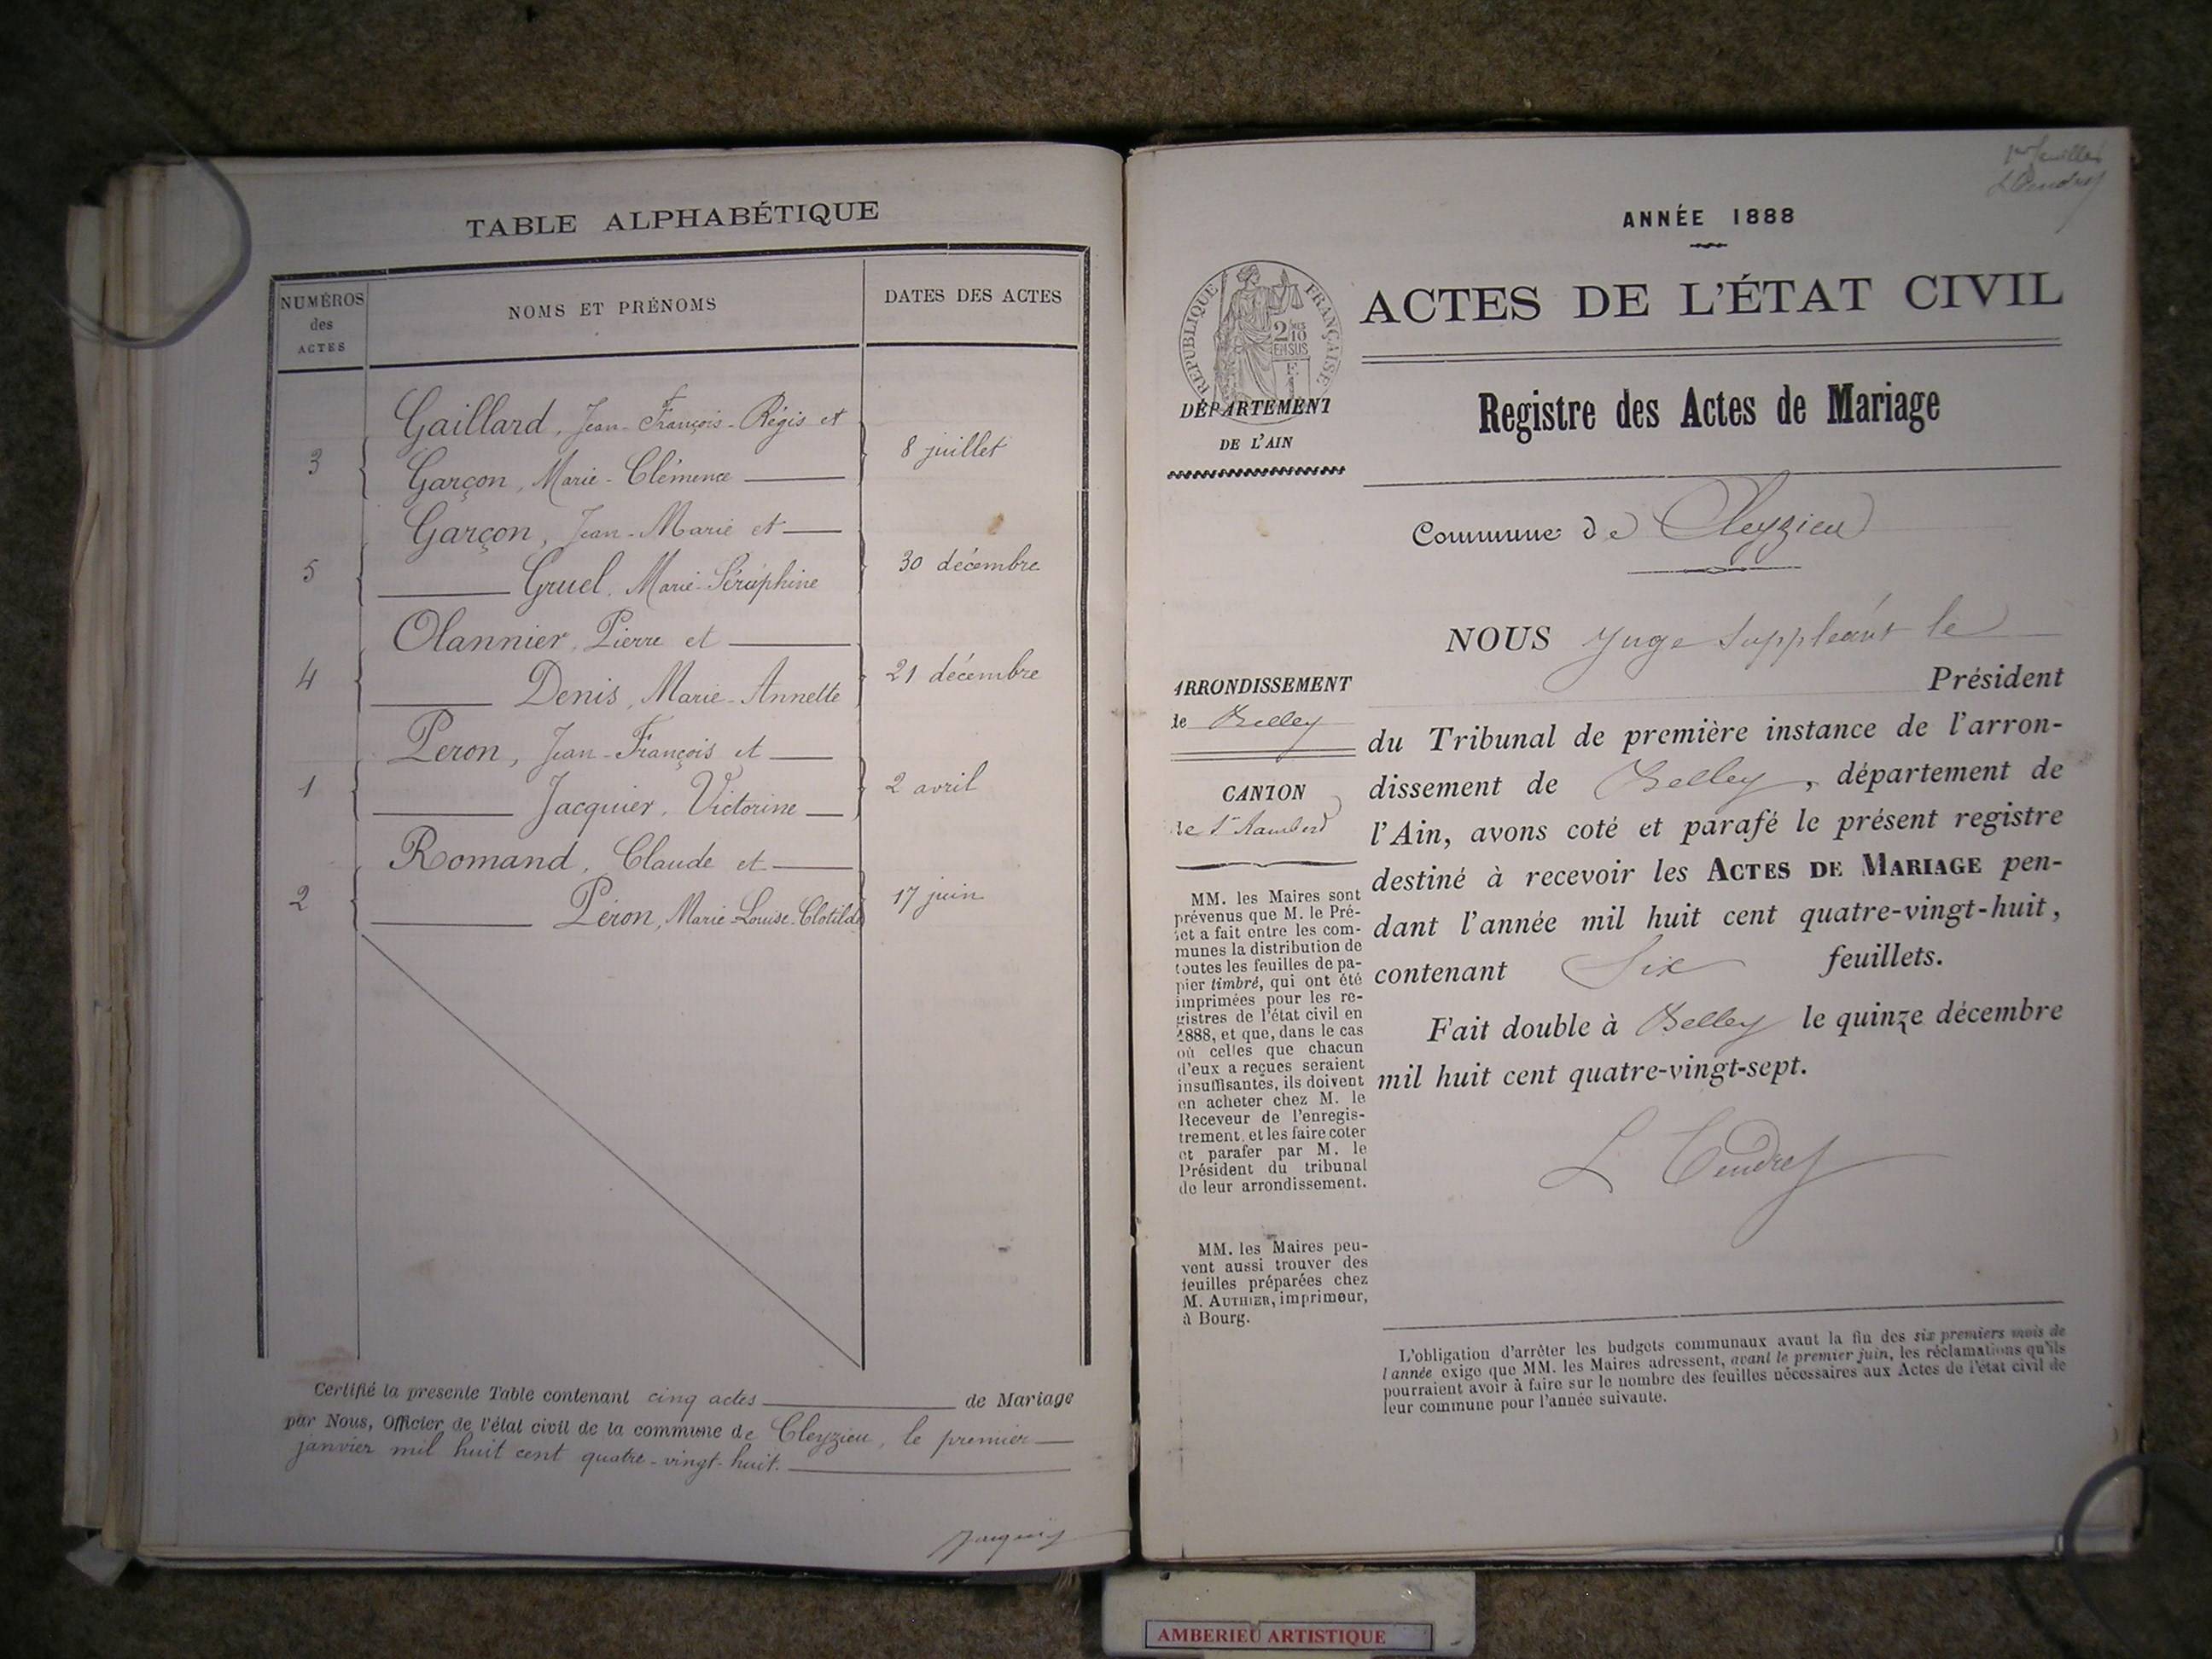 TABLE ALPHABÉTIQUE
NUMÉROS des ACTES
NOMS ET PRÉNOMS
DATES DES ACTES
Gaillard, Jean-François-Régis et
3
Garçon, Marie-Clémence
8 juillet
Garçon, Jean-Marie et
5
Gruel, Marie-Séraphine
30 décembre
Olannier, Pierre et
4
Denis, Marie-Annette
21 décembre
Peron, Jean-François et
1
Jacquier, Victorine
2 avril
Romand, Claude et
2
Péron, Marie-Louise-Clotilde
17 juin
Certifié la presente Table contenant cinq actes de Mariage
par Nous, Officier de l'état civil de la commune de Cleyzieu, le premier
janvier mil huit cent quatre-vingt-huit.
1er feuillet
ANNÉE 1888
RÉPUBLIQUE FRANÇAISE
ACTES DE L'ÉTAT CIVIL
DÉPARTEMENT
DE L'AIN
Registre des Actes de Mariage
Commune de Cleyzieu
NOUS Juge Suppléant le
Président
du Tribunal de première instance de l'arron-
dissement de Belley, département de
l'Ain, avons coté et parafé le présent registre
destiné à recevoir les ACTES DE MARIAGE pen-
dant l'année mil huit cent quatre-vingt-huit,
contenant Six feuillets.
Fait double à Belley le quinze décembre
mil huit cent quatre-vingt-sept.
ARRONDISSEMENT
de Belley
CANTON
de St Rambert
MM. les Maires sont
prévenus que M. le Pré-
fet a fait entre les com-
munes la distribution de
toutes les feuilles de pa-
pier timbré, qui ont été
imprimées pour les re-
gistres de l'état civil en
1888, et que, dans le cas
où celles que chacun
d'eux a reçues seraient
insuffisantes, ils doivent
en acheter chez M. le
Receveur de l'enregis-
trement, et les faire coter
et parafer par M. le
Président du tribunal
de leur arrondissement.
MM. les Maires peu-
vent aussi trouver des
feuilles préparées chez
M. AUTHIER, imprimeur,
à Bourg.
L'obligation d'arrêter les budgets communaux avant la fin des six premiers mois de
l'année exige que MM. les Maires adressent, avant le premier juin, les réclamations qu'ils
pourraient avoir à faire sur le nombre des feuilles nécessaires aux Actes de l'état civil de
leur commune pour l'année suivante.
AMBERIEU ARTISTIQUE